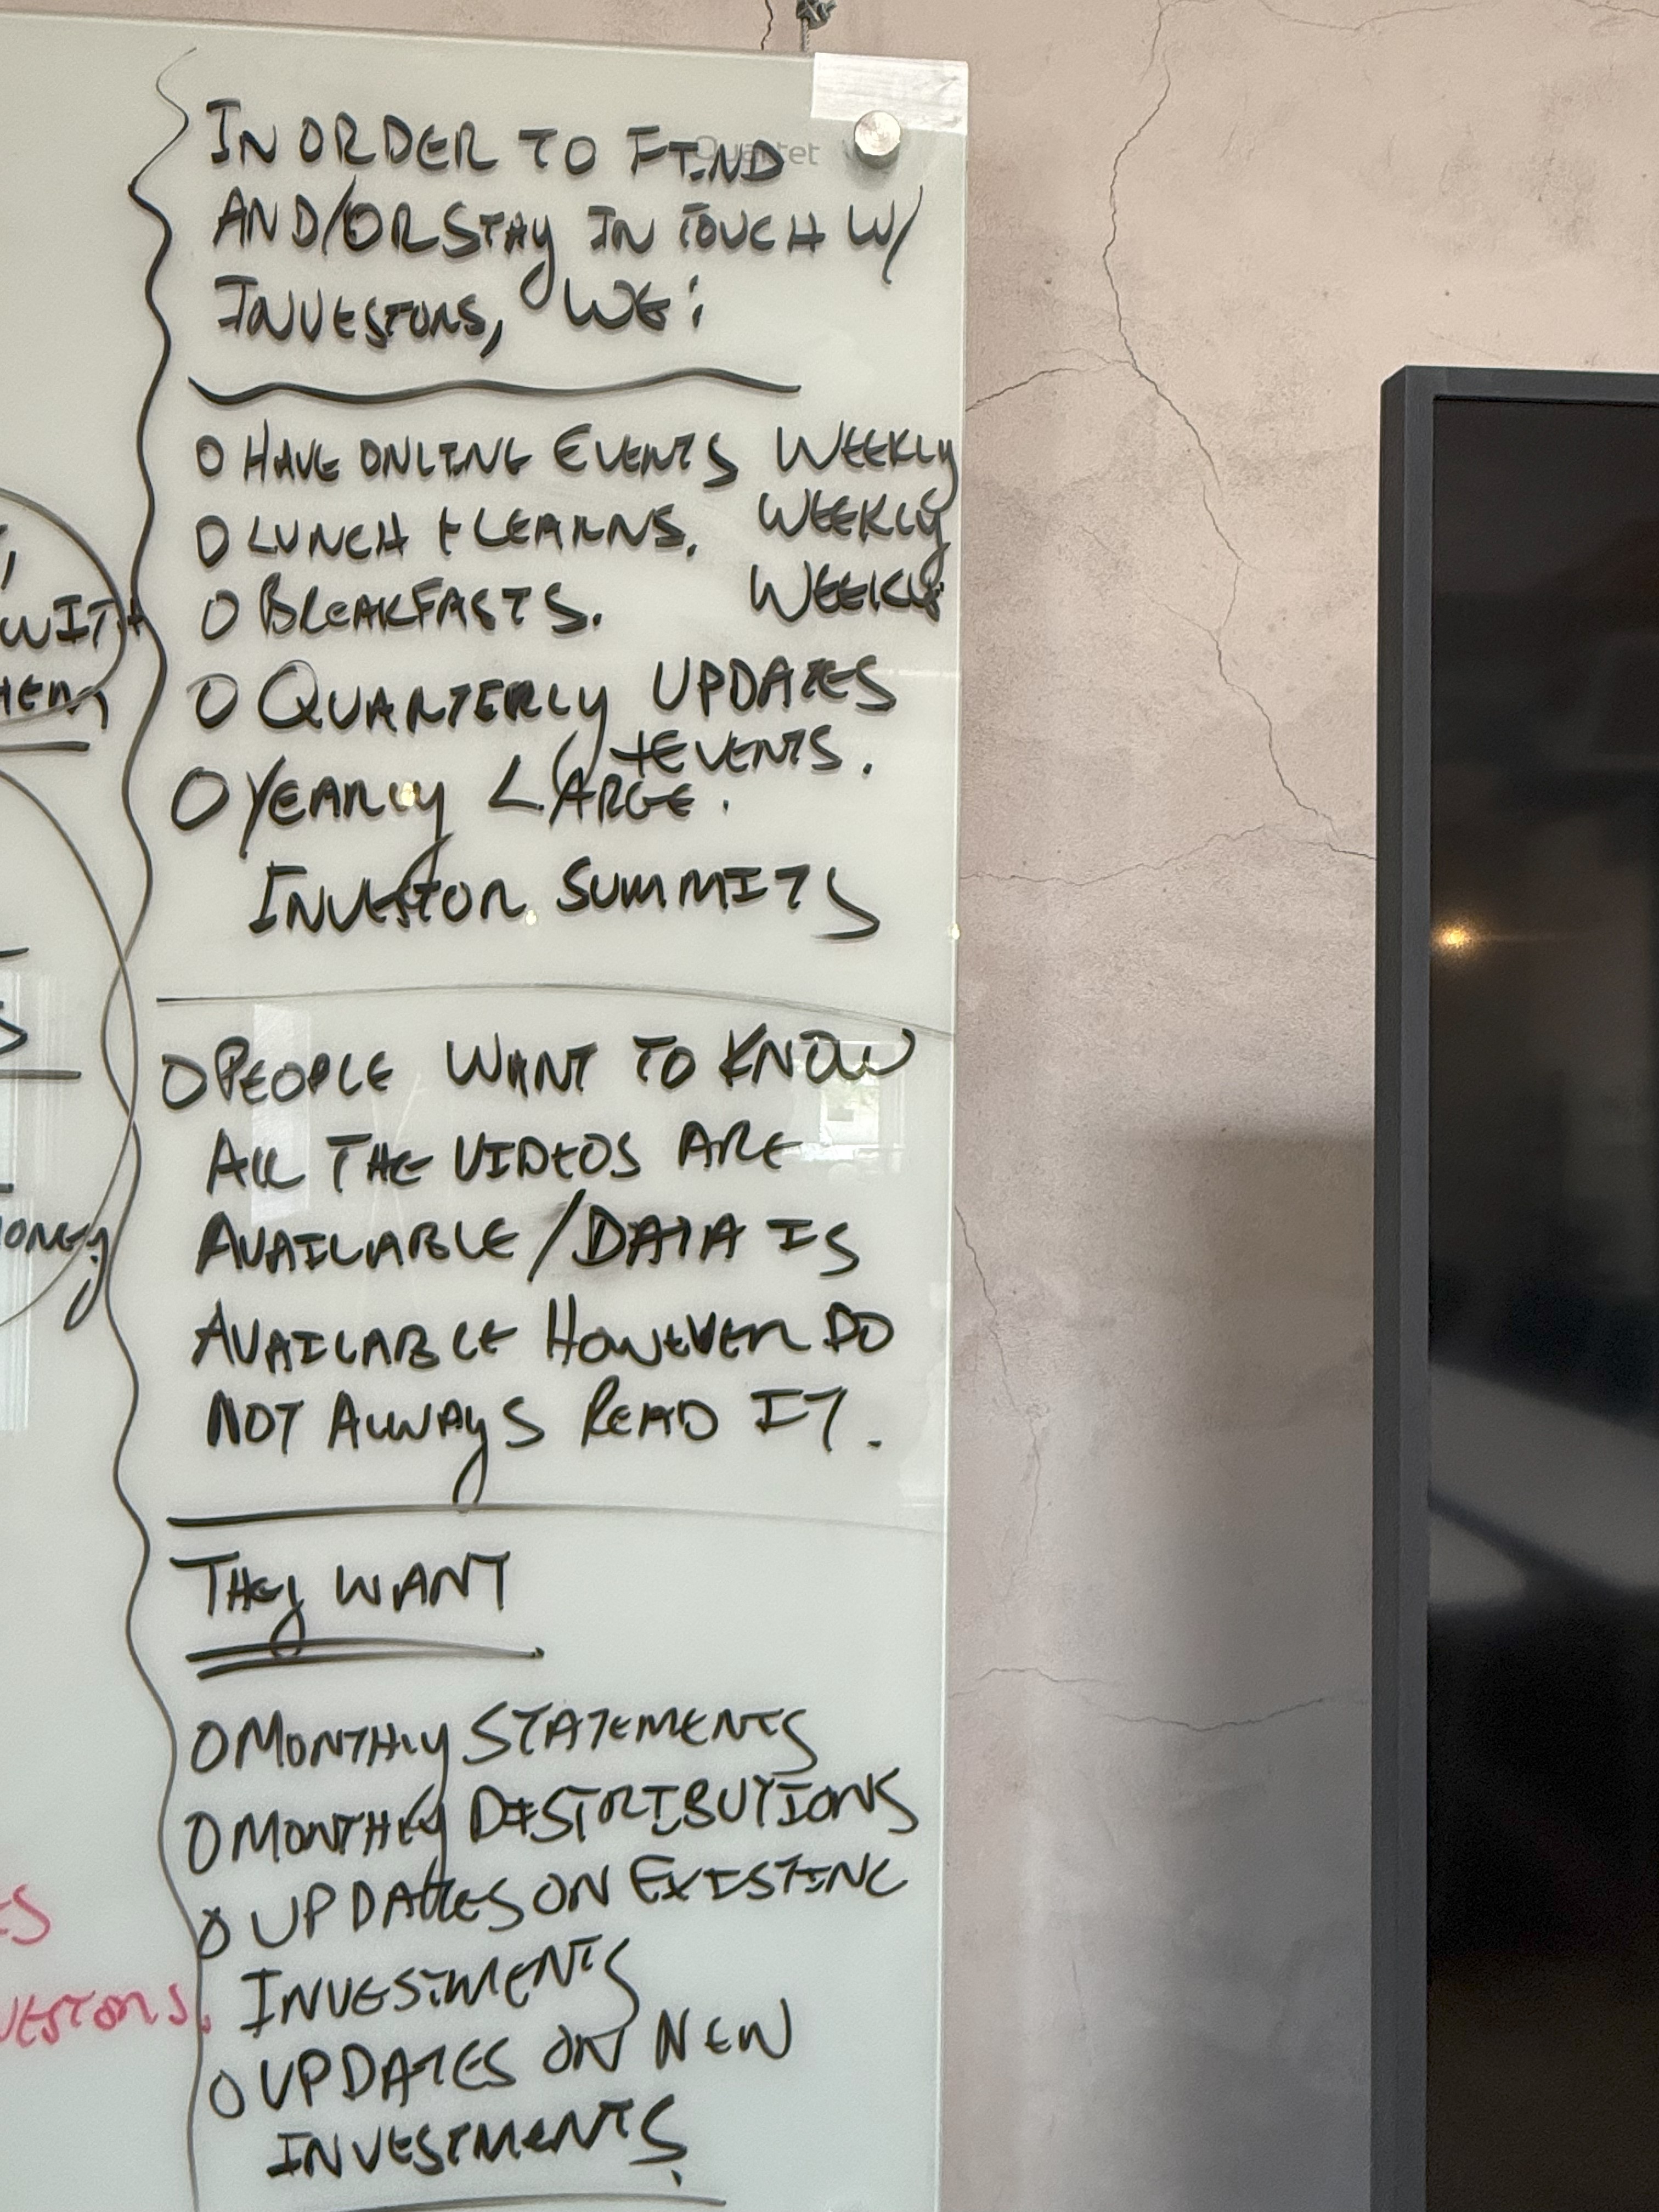 IN ORDER TO FIND
AND/OR STAY IN TOUCH W/
INVESTORS, WE:
O HAVE ONLINE EVENTS WEEKLY
O LUNCH + LEARNS. WEEKLY
O BREAKFASTS. WEEKLY
O QUARTERLY UPDATES
+ EVENTS.
O YEARLY LARGE.
INVESTOR SUMMITS
O PEOPLE WANT TO KNOW
ALL THE VIDEOS ARE
AVAILABLE/DATA IS
AVAILABLE HOWEVER DO
NOT ALWAYS READ IT.
THEY WANT
O MONTHLY STATEMENTS
O MONTHLY DISTRIBUTIONS
O UPDATES ON EXISTING
INVESTMENTS
O UPDATES ON NEW
INVESTMENTS.